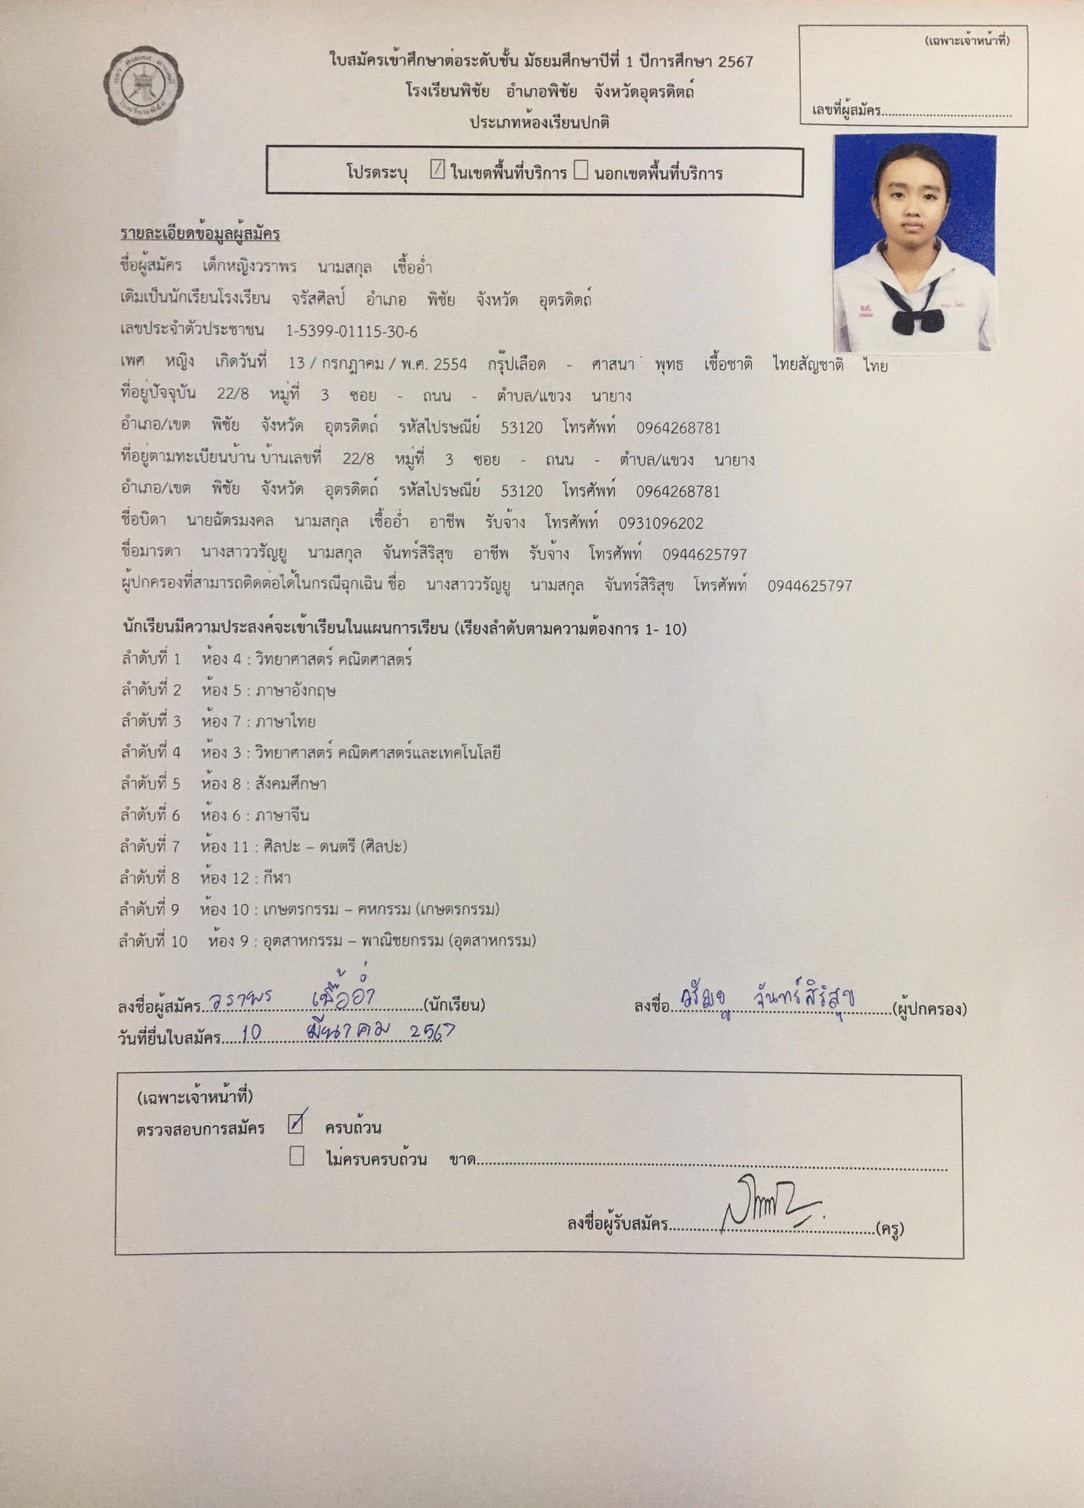 (เฉพาะเจ้าหน้าที่)
เลขที่ผู้สมัคร
ใบสมัครเข้าศึกษาต่อระดับชั้น มัธยมศึกษาปีที่ 1 ปีการศึกษา 2567
โรงเรียนพิชัย อำเภอพิชัย จังหวัดอุตรดิตถ์
ประเภทห้องเรียนปกติ
โปรดระบุ ในเขตพื้นที่บริการ นอกเขตพื้นที่บริการ
รายละเอียดข้อมูลผู้สมัคร
ชื่อผู้สมัคร เด็กหญิงวราพร นามสกุล เชื้ออ่ำ
เดิมเป็นนักเรียนโรงเรียน จรัสศิลป์ อำเภอ พิชัย จังหวัด อุตรดิตถ์
เลขประจำตัวประชาชน 1-5399-01115-30-6
เพศ หญิง เกิดวันที่ 13 / กรกฎาคม / พ.ศ. 2554 กรุ๊ปเลือด - ศาสนา พุทธ เชื้อชาติ ไทยสัญชาติ ไทย
ที่อยู่ปัจจุบัน 22/8 หมู่ที่ 3 ซอย - ถนน - ตำบล/แขวง นายาง
อำเภอ/เขต พิชัย จังหวัด อุตรดิตถ์ รหัสไปรษณีย์ 53120 โทรศัพท์ 0964268781
ที่อยู่ตามทะเบียนบ้าน บ้านเลขที่ 22/8 หมู่ที่ 3 ซอย - ถนน - ตำบล/แขวง นายาง
อำเภอ/เขต พิชัย จังหวัด อุตรดิตถ์ รหัสไปรษณีย์ 53120 โทรศัพท์ 0964268781
ชื่อบิดา นายฉัตรมงคล นามสกุล เชื้ออ่ำ อาชีพ รับจ้าง โทรศัพท์ 0931096202
ชื่อมารดา นางสาววรัญยู นามสกุล จันทร์สิริสุข อาชีพ รับจ้าง โทรศัพท์ 0944625797
ผู้ปกครองที่สามารถติดต่อได้ในกรณีฉุกเฉิน ชื่อ นางสาววรัญยู นามสกุล จันทร์สิริสุข โทรศัพท์ 0944625797
นักเรียนมีความประสงค์จะเข้าเรียนในแผนการเรียน (เรียงลำดับตามความต้องการ 1- 10)
ลำดับที่ 1 ห้อง 4 : วิทยาศาสตร์ คณิตศาสตร์
ลำดับที่ 2 ห้อง 5 : ภาษาอังกฤษ
ลำดับที่ 3 ห้อง 7 : ภาษาไทย
ลำดับที่ 4 ห้อง 3 : วิทยาศาสตร์ คณิตศาสตร์และเทคโนโลยี
ลำดับที่ 5 ห้อง 8 : สังคมศึกษา
ลำดับที่ 6 ห้อง 6 : ภาษาจีน
ลำดับที่ 7 ห้อง 11 : ศิลปะ – ดนตรี (ศิลปะ)
ลำดับที่ 8 ห้อง 12 : กีฬา
ลำดับที่ 9 ห้อง 10 : เกษตรกรรม – คหกรรม (เกษตรกรรม)
ลำดับที่ 10 ห้อง 9 : อุตสาหกรรม – พาณิชยกรรม (อุตสาหกรรม)
ลงชื่อผู้สมัคร วราพร เชื้ออ่ำ (นักเรียน) ลงชื่อ วรัญยู จันทร์สิริสุข (ผู้ปกครอง)
วันที่ยื่นใบสมัคร 10 มีนาคม 2567
(เฉพาะเจ้าหน้าที่)
ตรวจสอบการสมัคร ครบถ้วน
ไม่ครบครบถ้วน ขาด
ลงชื่อผู้รับสมัคร (ครู)